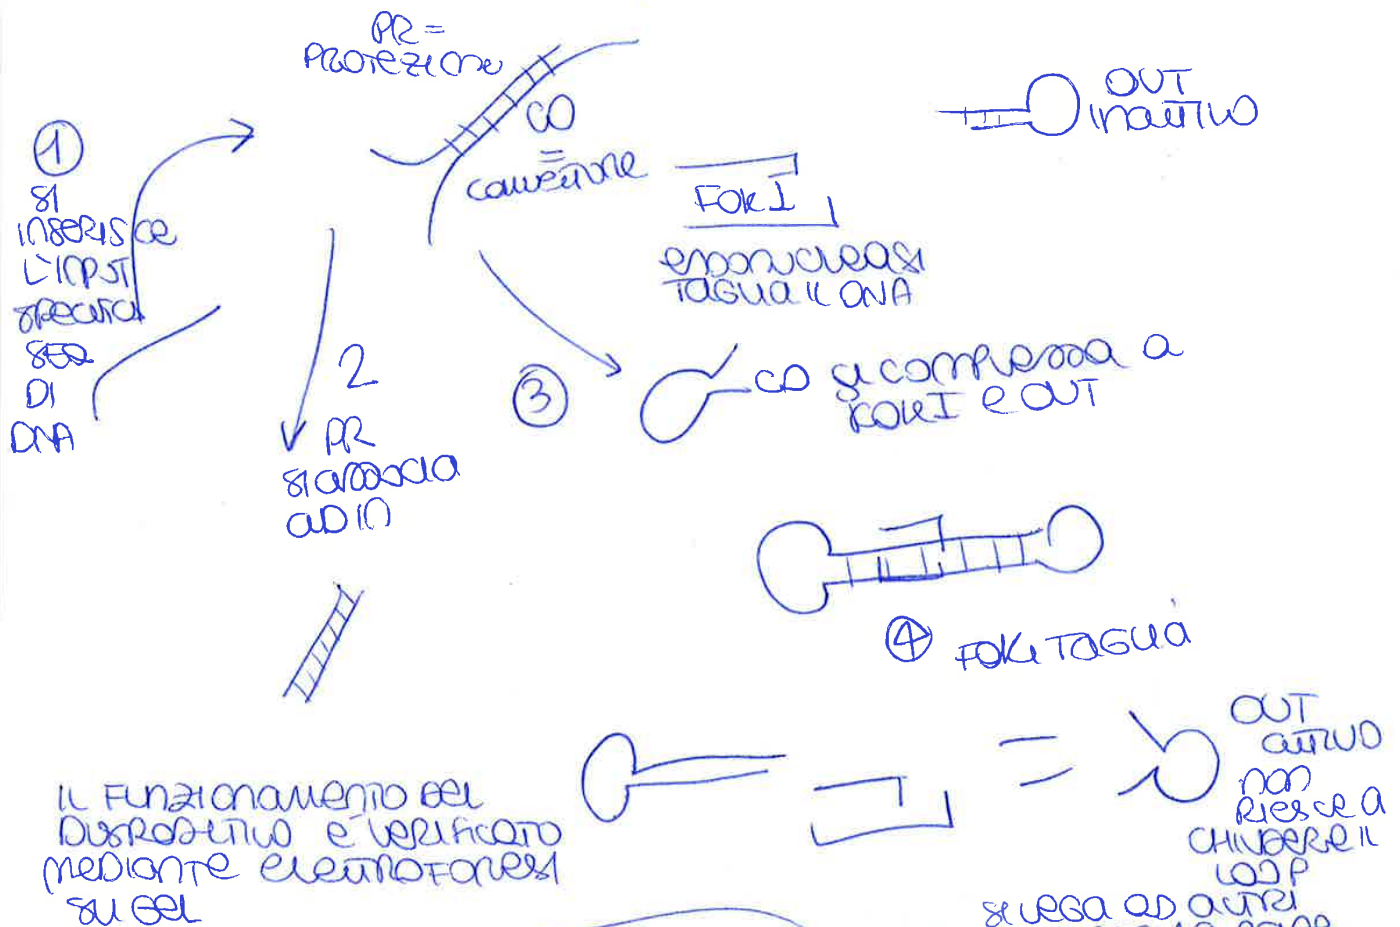 PR =
PROTEZIONE
CO
=
CONNETTORE
OUT
inattivo
FOKI
esonucleasi
TAGLIA IL DNA
1
SI
INSERISCE
L'INPUT
SPECIFICA
SEQ
DI
DNA
2
PR
SI associa
AD IN
3
CO si complessa a
FOKI e OUT
4 FOKI TAGLIA
OUT
attivo
non
RIESCE A
CHIUDERE IL
LOOP
SI LEGA AD ALTRI
IL FUNZIONAMENTO DEL
DISPOSITIVO E' VERIFICATO
MEDIANTE ELETTROFORESI
SU GEL